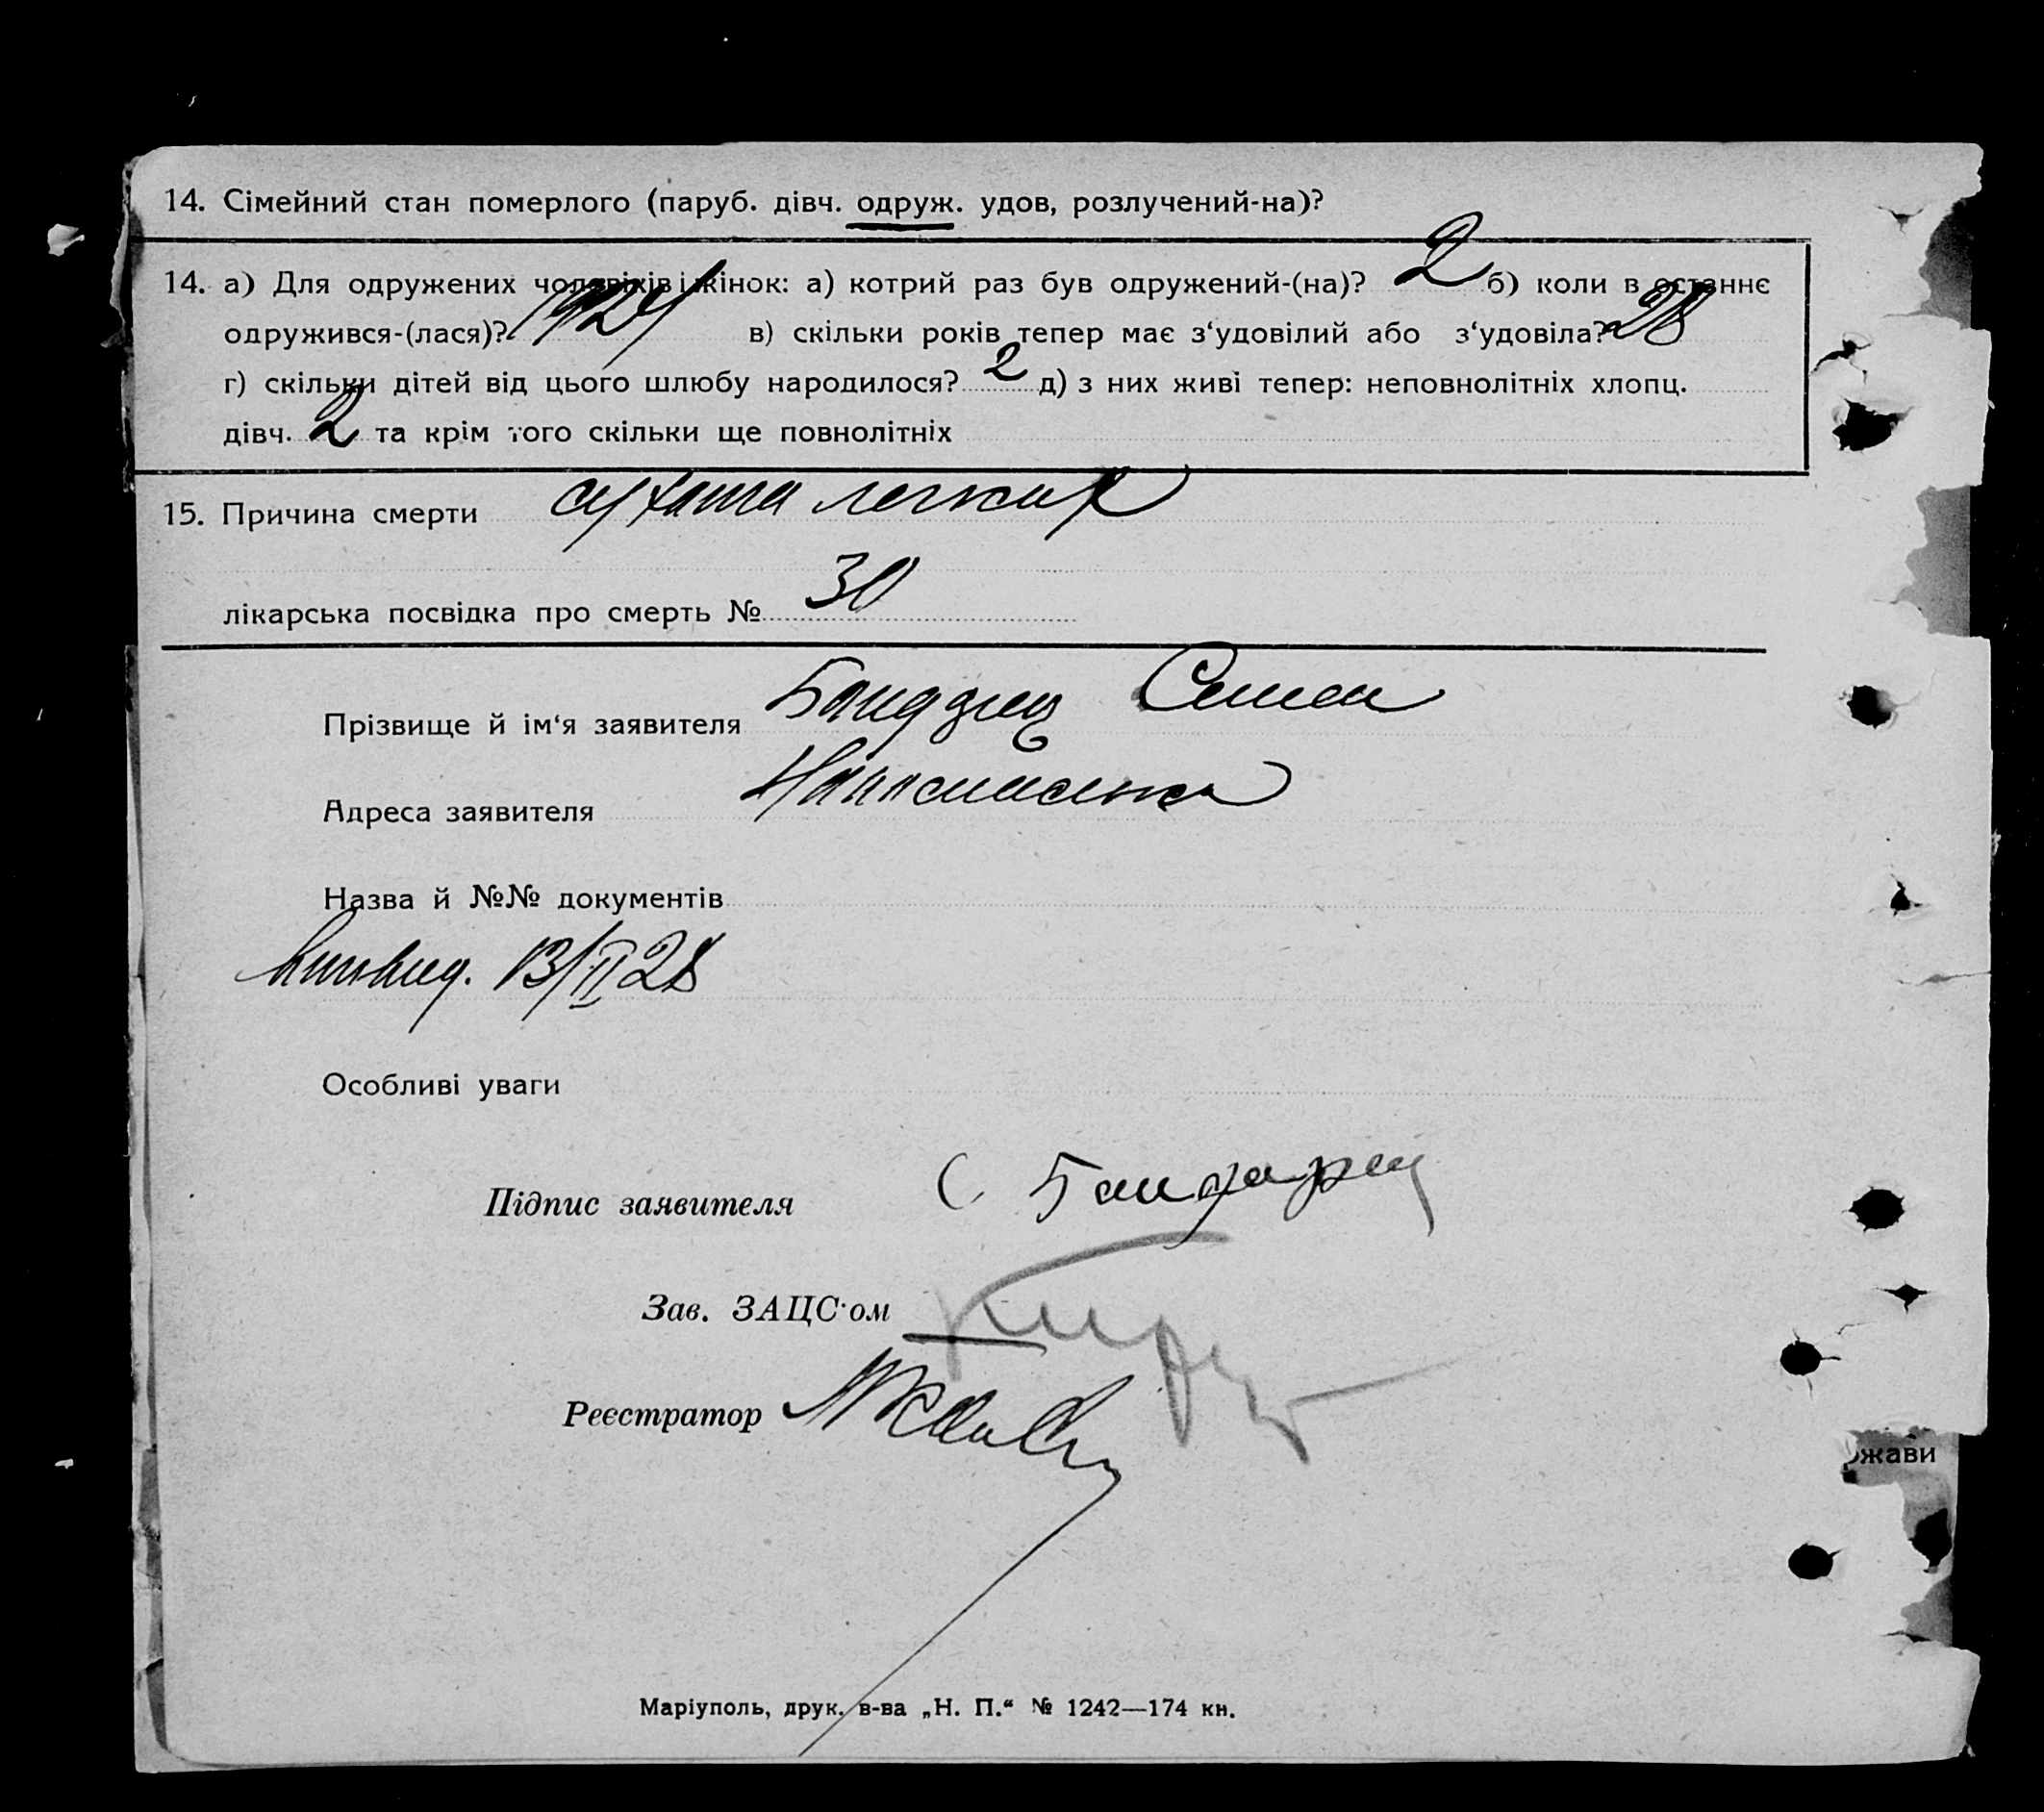 14. Сімейний стан померлого (паруб. дівч. одруж. удов, розлучений-на)?
14. а) Для одружених чоловіків і жінок: а) котрий раз був одружений-(на)? 2 б) коли в останнє
одружився-(лася)? 1924 в) скільки років тепер має з‘удовілий або з‘удовіла? 28
г) скільки дітей від цього шлюбу народилося? 2 д) з них живі тепер: неповнолітніх хлопц.
дівч. 2 та крім того скільки ще повнолітніх
15. Причина смерти сухота легких
лікарська посвідка про смерть № 30
Прізвище й ім‘я заявителя Семен
Адреса заявителя
Назва й №№ документів
13/II 28
Особливі уваги
Підпис заявителя С.
Зав. ЗАЦС·ом
Реєстратор
ржави
Маріуполь, друк. в-ва „Н. П.“ № 1242—174 кн.